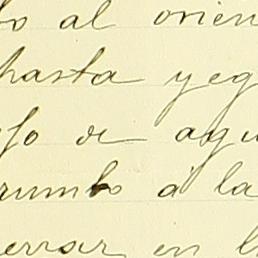 bo al orien
hasta yeg
jo de agu
rumbo á la
errar en l